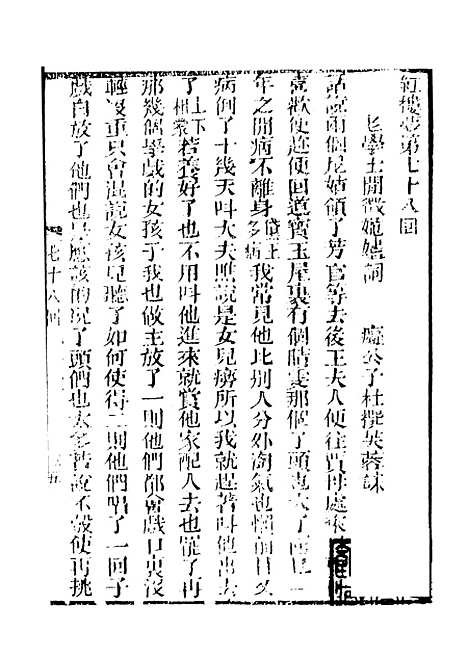 紅樓夢第七十八回
老學士閒徵姽嫿詞 癡公子杜撰芙蓉誄
話說兩個尼姑領了芳官等去後王夫人便往賈母處來
喜歡便趁便回道寶玉屋裏有個晴雯那個丫頭也大了而且一
年之間病不離身我常見他比別人分外淘氣也懶前日又
病倒了十幾天叫大夫瞧說是女兒癆所以我就趕著叫他出去
了若養好了也不用叫他進來就賞他家配人去也罷了再
那幾個學戲的女孩子我也做主放了一則他們都會戲口裏沒
輕沒重只會混說女孩兒聽了如何使得二則他們唱了一回子
戲白放了他們也是應該的況丫頭們也太多若說不彀使再挑
七十八回